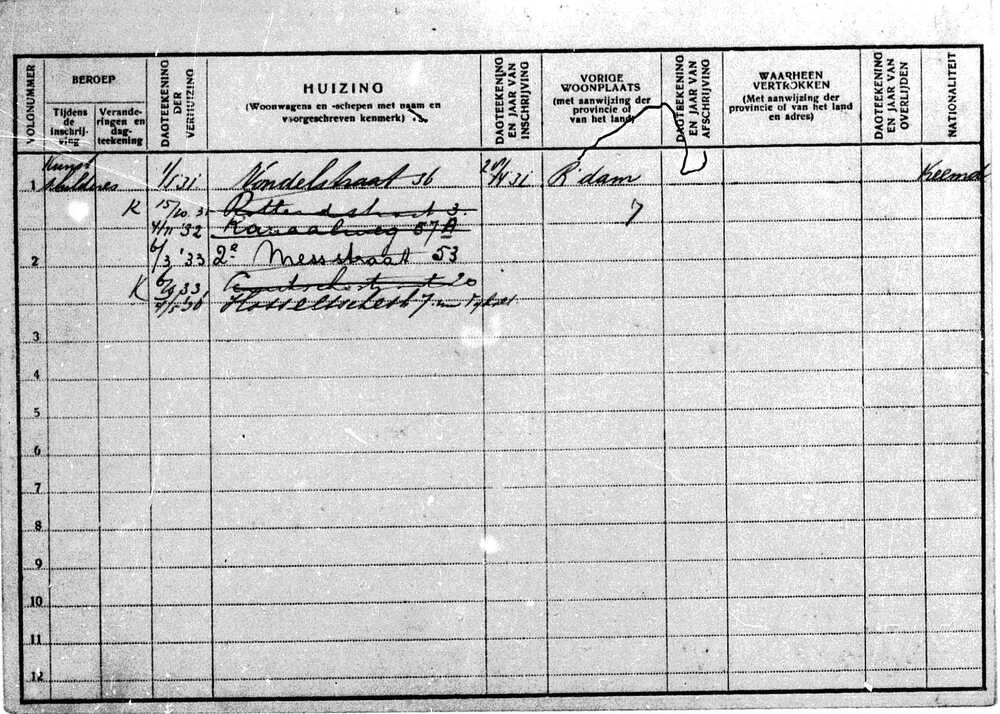 VOLGNUMMER
BEROEP
Tijdens de inschrijving
Tijdens
de
inschrij-
ving
Verande-
ringen en
dag-
teekening
DAGTEEKENING
DER
VERHUIZING
HUIZING
(Woonwagens en -schepen met naam en
voorgeschreven kenmerk)
DAGTEEKENING
EN JAAR VAN
INSCHRIJVING
VORIGE
WOONPLAATS
(met aanwijzing der
provincie of
van het land)
DAGTEEKENING
EN JAAR VAN
AFSCHRIJVING
WAARHEEN
VERTROKKEN
(Met aanwijzing der
provincie of van het land
en adres)
DAGTEEKENING
EN JAAR VAN
OVERLIJDEN
NATIONALITEIT
Kunst
1 schilderes 1/5 31 Vondelstraat 36 31 R'dam
K 15/10 3. 7
4/11 '32 Kanaalweg 57A
2 6/3 '33 2e Messstraat 53
K 6/9 33 20
4/5 36 7
3
4
5
6
7
8
9
10
11
12